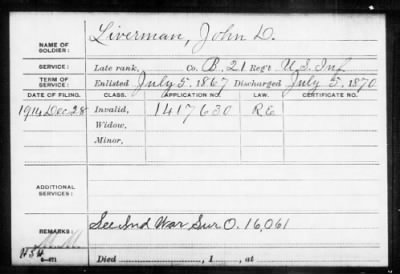 NAME OF SOLDIER: Liverman, John D.
SERVICE: Late rank, Co. B, 21 Reg't U.S. Inf
TERM OF SERVICE: Enlisted July 5, 1867 Discharged July 5, 1870
DATE OF FILING. CLASS. APPLICATION NO. LAW. CERTIFICATE NO.
1916 Dec 28 Invalid, 1417630 RE
Widow,
Minor,
ADDITIONAL SERVICES:
REMARKS: See Ind War Sur O. 16,061
Died , 1 , at